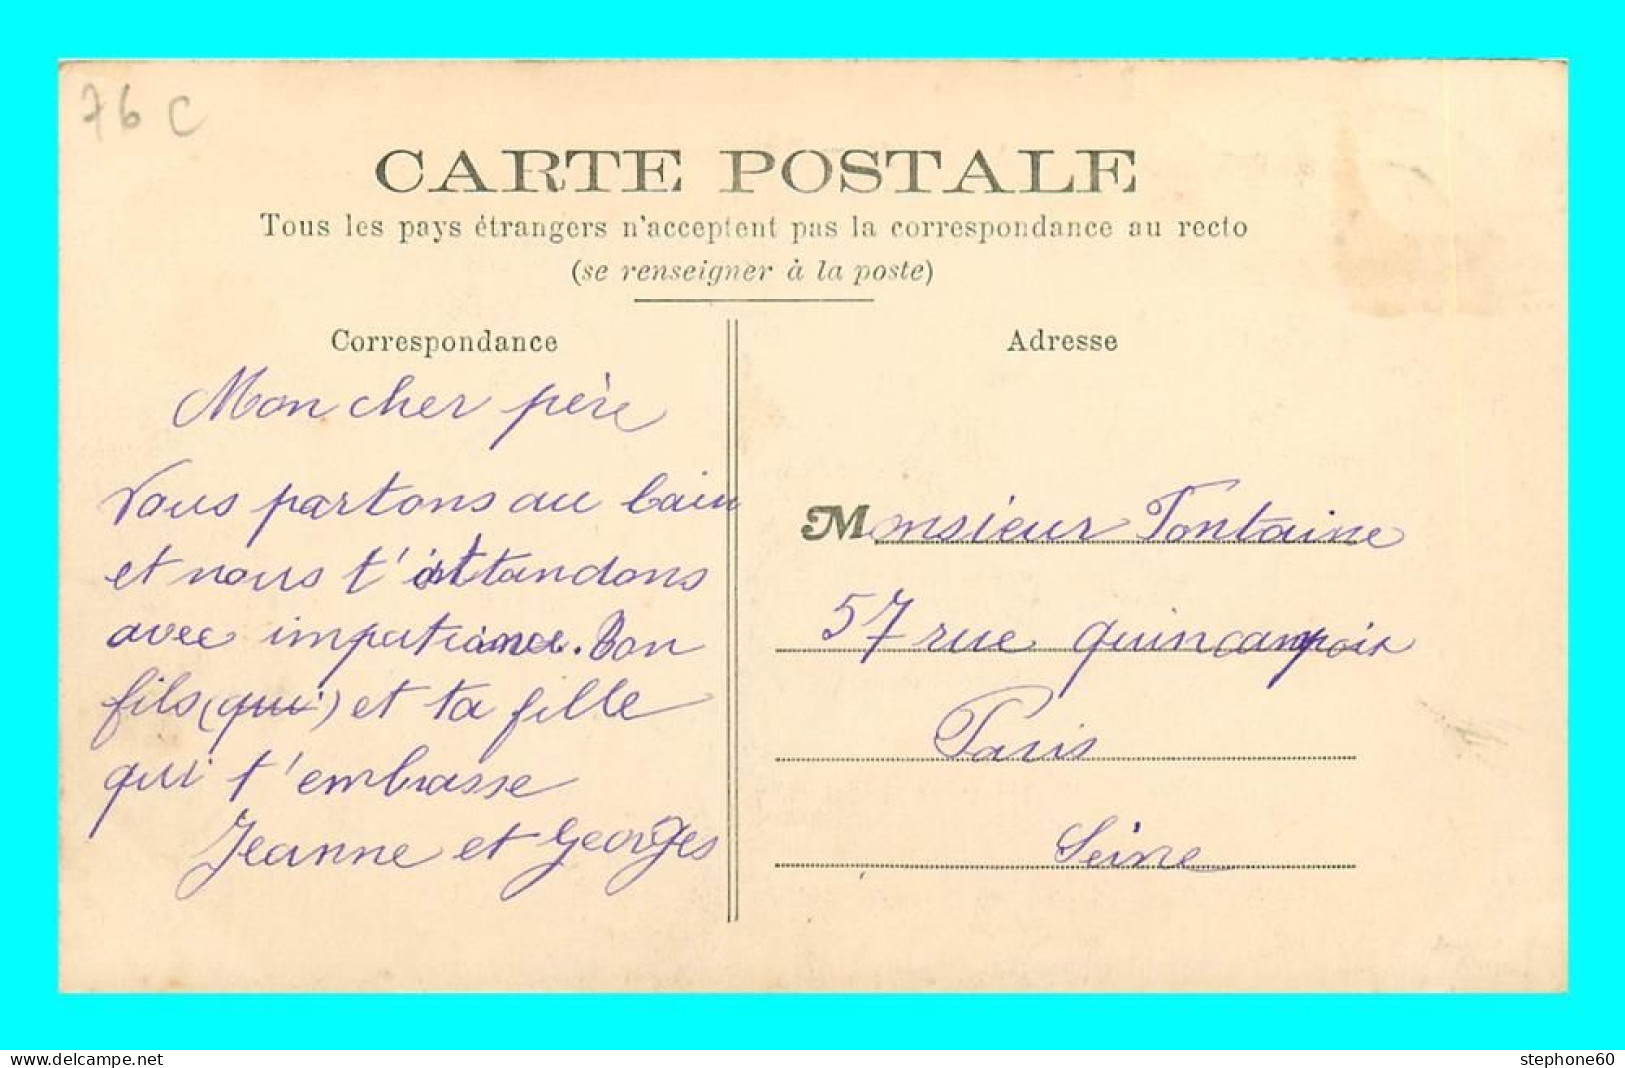 76 C
CARTE POSTALE
Tous les pays étrangers n'acceptent pas la correspondance au recto
(se renseigner à la poste)
Correspondance
Mon cher père
Nous partons au bain
et nous t'attandons
avec impatiance. Bon
fils (qui) et ta fille
qui t'embrasse
Jeanne et Georges
Adresse
Monsieur Fontaine
57 rue quincampoix
Paris
Seine
www.delcampe.net
stephone60